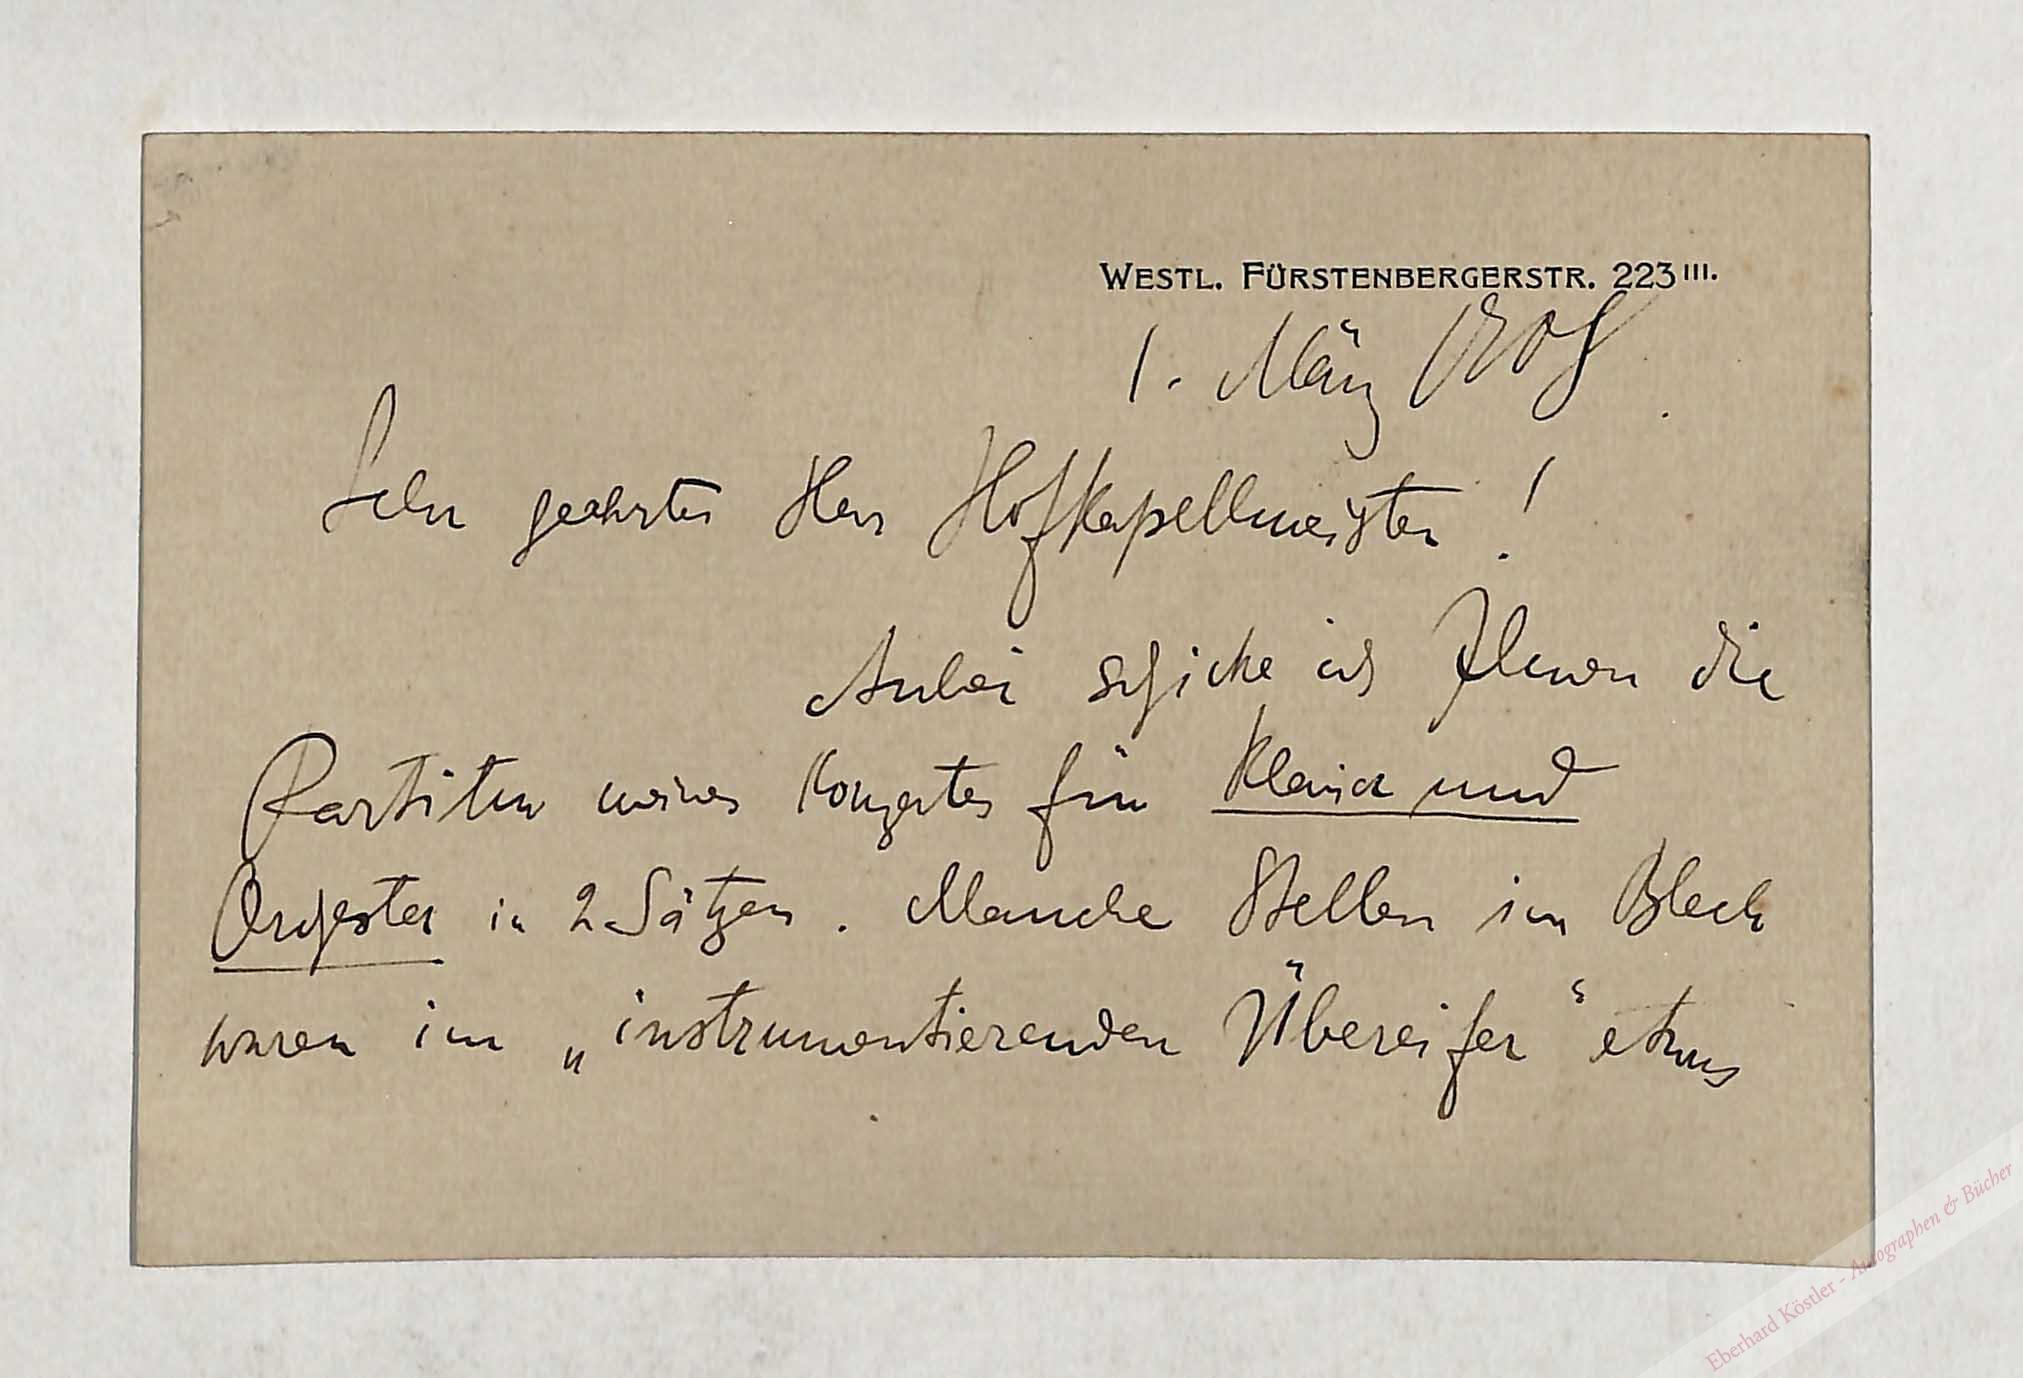 WESTL. FÜRSTENBERGERSTR. 223 III.
1. März 1908
Sehr geehrter Herr Hofkapellmeister!
Anbei schicke ich Ihnen die
Partitur meines Konzertes für Klavier und
Orchester in 2 Sätzen. Manche Stellen im Blech
waren im „instrumentierenden Übereifer“ etwas
Eberhard Köstler - Autographen & Bücher